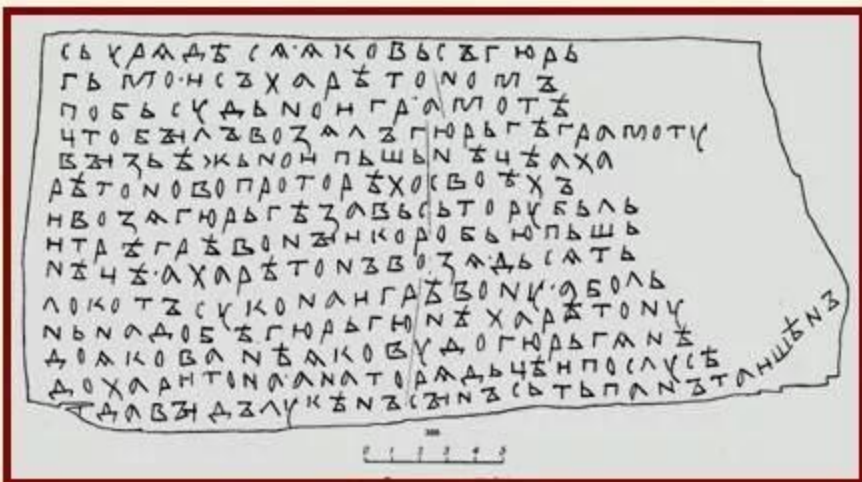 сь урѧдѣ сѧ·ѧковь съгюрь
гь мо·н съ харѣтономъ
по бьсудьнон гра·мотѣ
цто бъілъ возѧлъ гюрьгѣ грамоту
въізьѣжьнон пьшьнѣцѣ аха
рѣтоно во проторѣхо своѣхъ
н возѧ гюрьгѣ завьсьто рубьль
н трѣ грѣвонъі н коробью пьшь
нѣцѣ·ахарѣтонъ возѧ·дьсѧть
локотъ сукона н грѣвону·аболь
нь надобѣ гюрьгю нѣ харѣтону
доѧкова нѣ ѧкову догюрьгѧ нѣ
дохарнтона·анато рѧдьцѣ н послусѣ
давъідъ лукѣнъ съінъ стьпанъ таншѣнъ
0 1 2 3 4 5